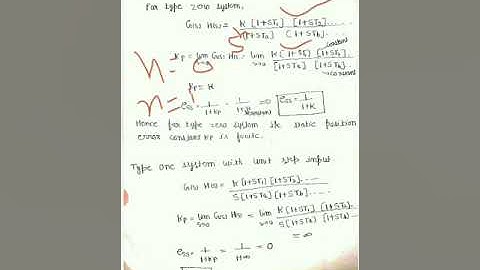 For type zero system,
G(s) H(s) = K [1+ST1] [1+ST2] ..... / [1+STa] [1+STb] ..
constant
Kp = lim s→0 G(s) H(s) = lim s→0 K [1+ST1] [1+ST2] / [1+STa] [1+STb]
constant
n = 0
Kp = K
n = 1
ess = 1/1+Kp = 1/1+ (constant) => ess = 1/1+K
Hence for type zero system the static position
error constant Kp is finite.
Type one system with unit step input
G(s) H(s) = K [1+ST1] [1+ST2] .... / S [1+STa] [1+STb] ....
Kp = lim s→0 G(s) H(s) = lim s→0 K [1+ST1] [1+ST2] .. / S [1+STa] [1+STb] ..
= ∞
ess = 1/1+Kp = 1/1+∞ = 0